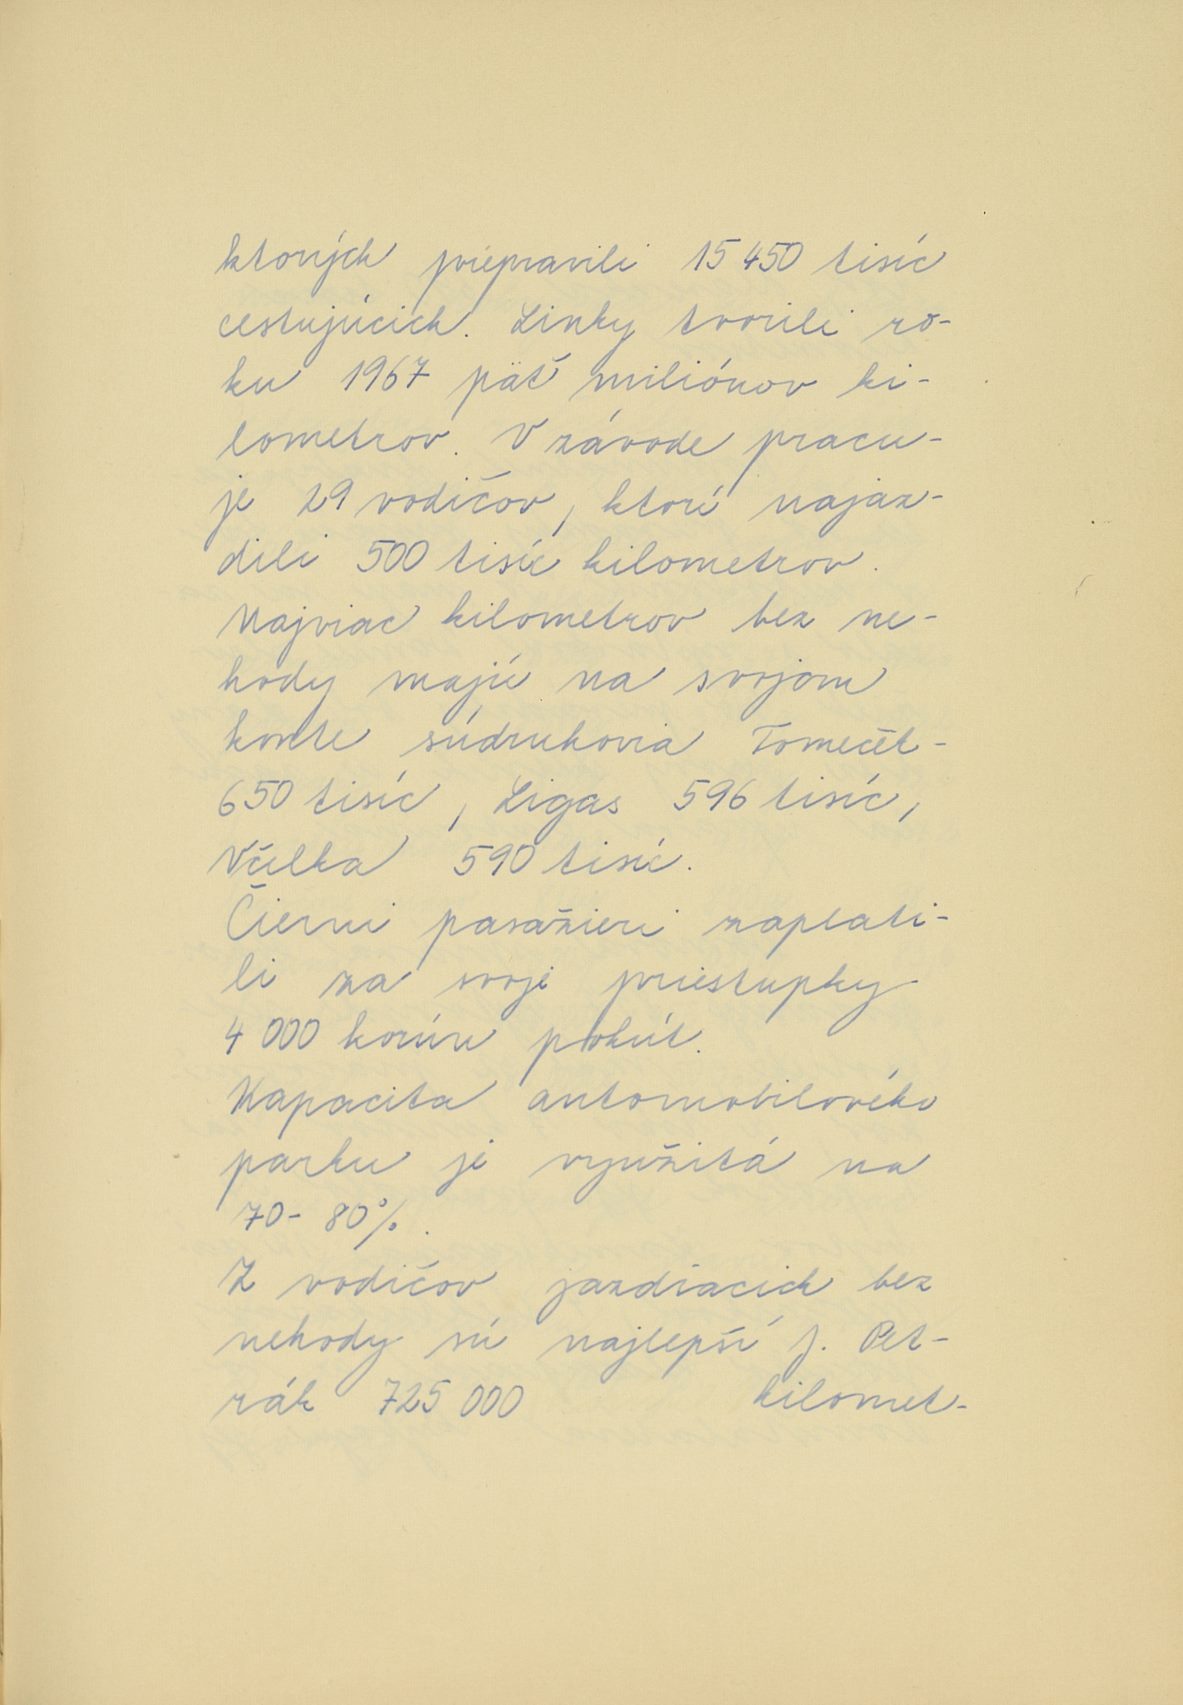 ktorých prepravili 15 450 tisíc
cestujúcich. Linky tvorili ro-
ku 1967 päť miliónov ki-
lometrov. V závode pracu-
je 29 vodičov, ktorí najaz-
dili 500 tisíc kilometrov.
Najviac kilometrov bez ne-
hody majú na svojom
konte súdruhovia Tomeček -
650 tisíc, Ligas 596 tisíc,
Včelka 590 tisíc.
Čierni pasažieri zaplati-
li za svoje priestupky
4 000 korún pokút.
Kapacita automobilového
parku je využitá na
70 - 80%.
Z vodičov jazdiacich bez
nehody sú najlepší J. Pet-
rák 725 000 kilomet-